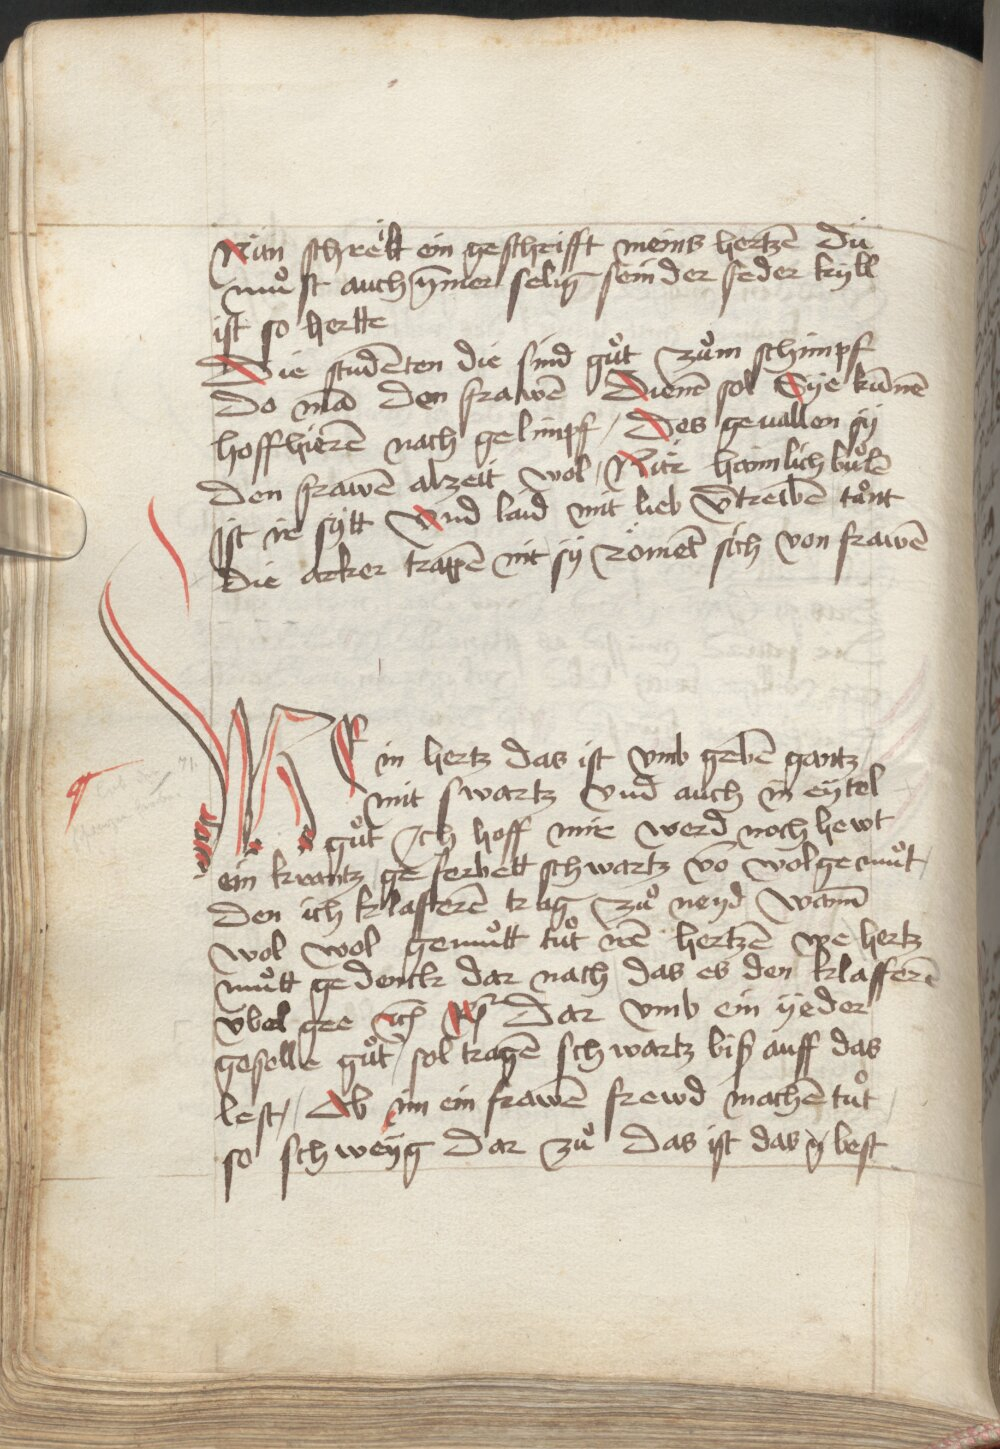 Nün schreͥbt ein geschrifft meins hertzē Dü
muͦst auch ÿm̄er selig sein der feder kyll
ist so hertte
Die studēten die sind guͦt zuͦm schimpf
Do mā den frawē Dienē sol Sye kün̄nē
hoffhierē nach gelimpf / Des geuallen sy
den frawē alzeit wol / Mitt haimlich buͦlē
ist ir sytt Vnd laid mit lieb v̄treibē
die nit sÿ römēt sich von frawē
Mein hertz das ist vmb gebē gantz
mit swartz vnd auch in eytel
guͦt Ich hoff mir werd noch hewt
ein krantz geferbett schwartz vō wolgemuͦt /
den ich klafferē trag zuͦ neyd Wan̄
wol wol gemuͦtt tuͦt hertzē we hertz
muͦtt gedenck dar nach das es den klafferē
v̈bel gee Dar vmb ein yeder
geselle guͦt sol tragē schwartz biß auff das
lest / Ob im ein frawē frewd machē tuͦt
so schweÿg Dar zuͦ das ist das best